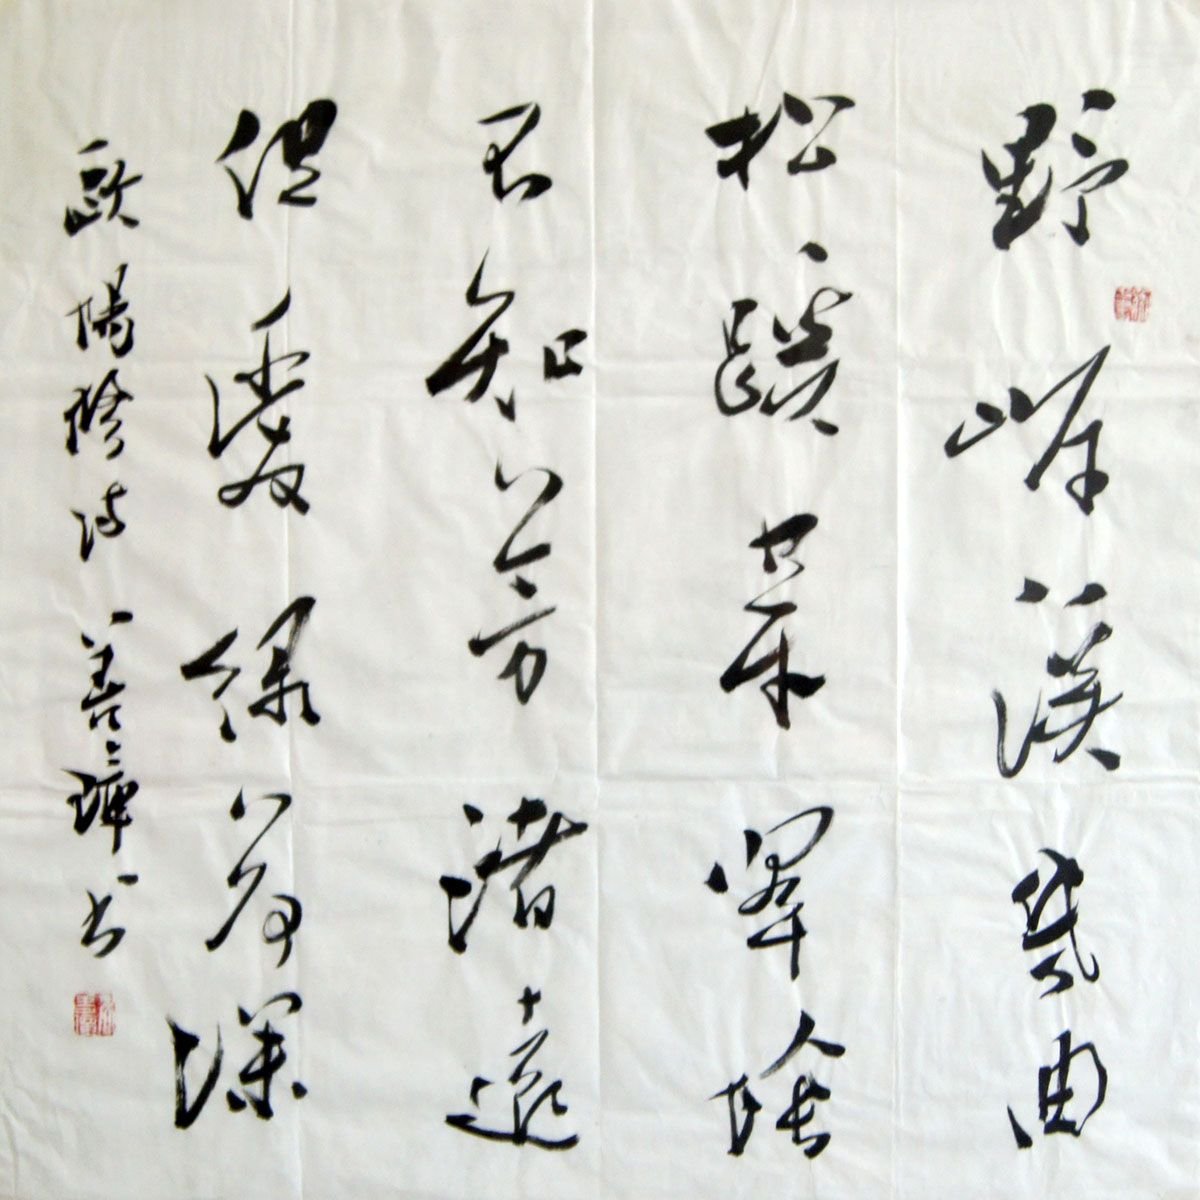 野岸溪幾曲
松蹊穿翠陰
不知芳渚遠
但愛綠荷深
歐陽修诗 善书